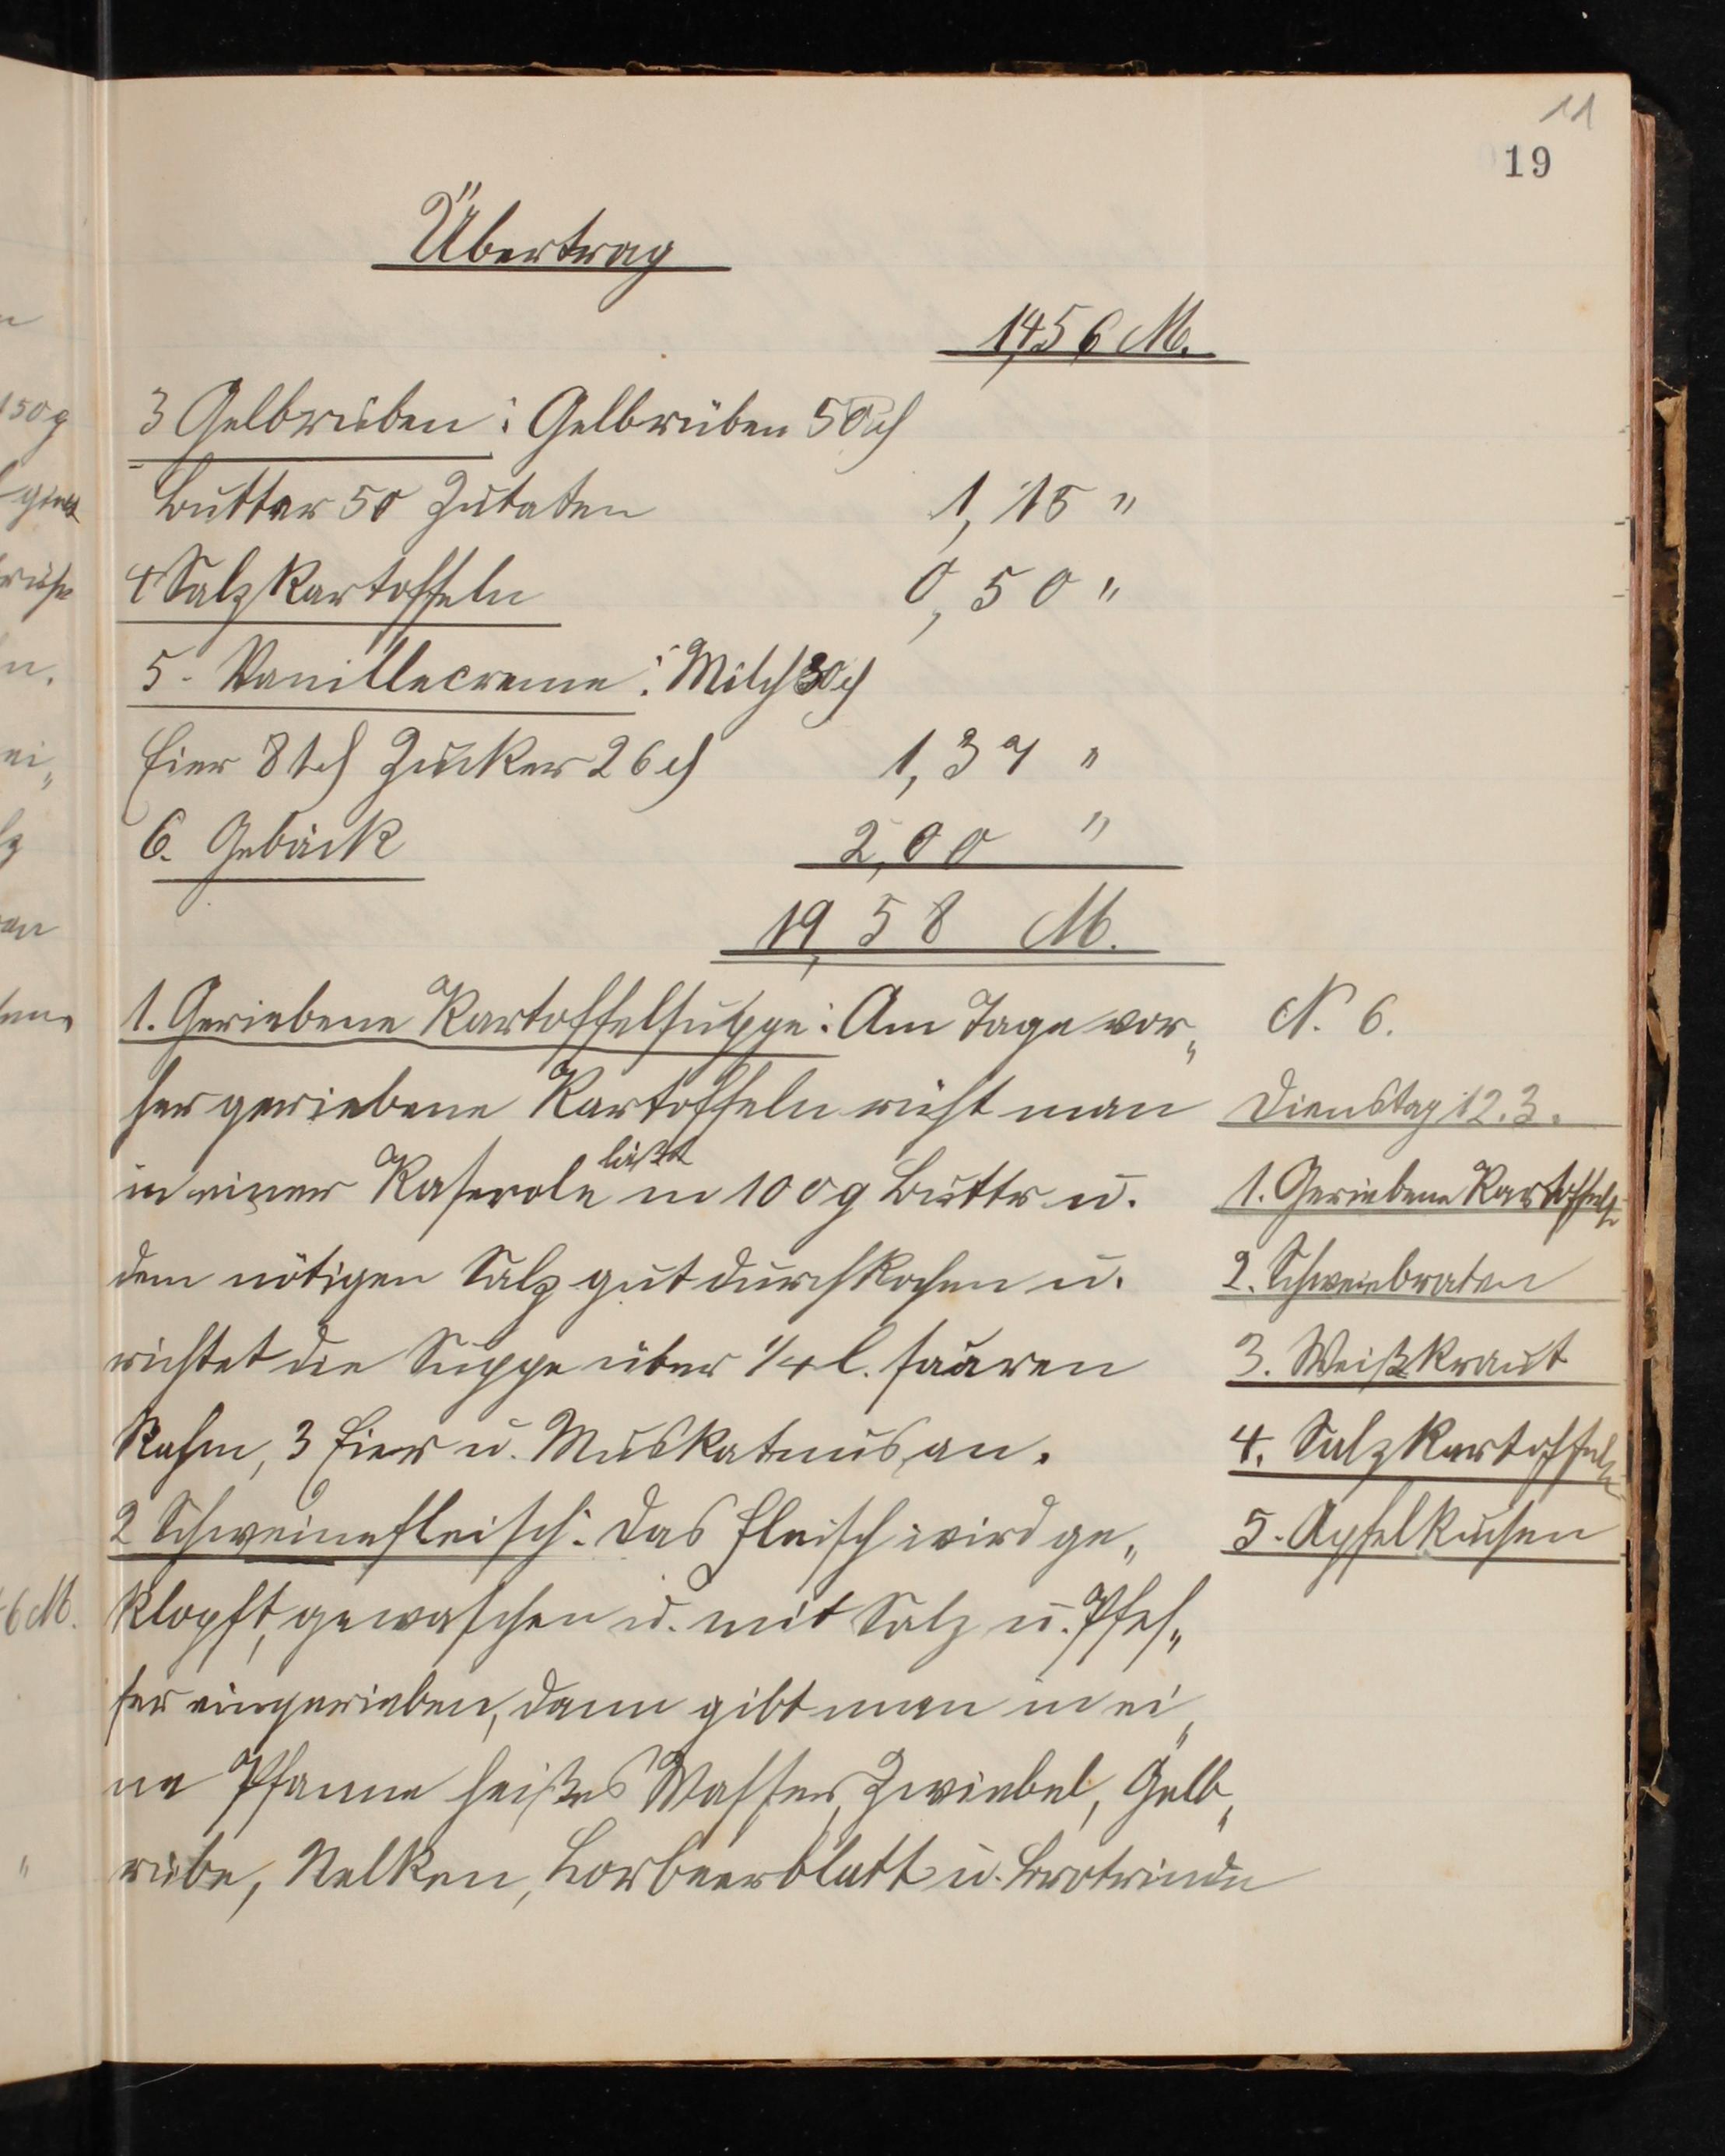 11
19
Übertrag
14,56 M.
3 Gelbrüben: Gelbrüben 50 ₰
Butter 50 Zutaten 1,15 "
4 Salzkartoffeln 0,50 "
5. Vanillecreme: Milch 30 ₰
Eier 81 ₰ Zucker 26 ₰ 1,37 "
6. Gebäck 2,00 "
19,58 M.
1. Geriebene Kartoffelsuppe: Am Tage vor„
her geriebene Kartoffeln man
in einer Kaserole läßt in 100g Buttr u.
dem nötigen Salz gut durchkochen u.
richtet die Suppe über 1/4 l. sauren
Rahm, 3 Eier u. Muskatnus an.
2 Schweinefleisch: Das Fleisch wird ge„
klopft, gewaschen u. mit Salz u. Pfef„
fer eingerieben, dann gibt man in ei„
ne Pfanne heißes Wasser, Zwiebel, Gelb„
rübe, Nelken, Lorbeerblatt u. Brotrinde
N. 6.
Dienstag 12.3.
1. Geriebene Kartoffels
2. Schweinebraten
3. Weißkraut
4. Salzkartoffeln
5. Apfelkuchen
150g
6 M.